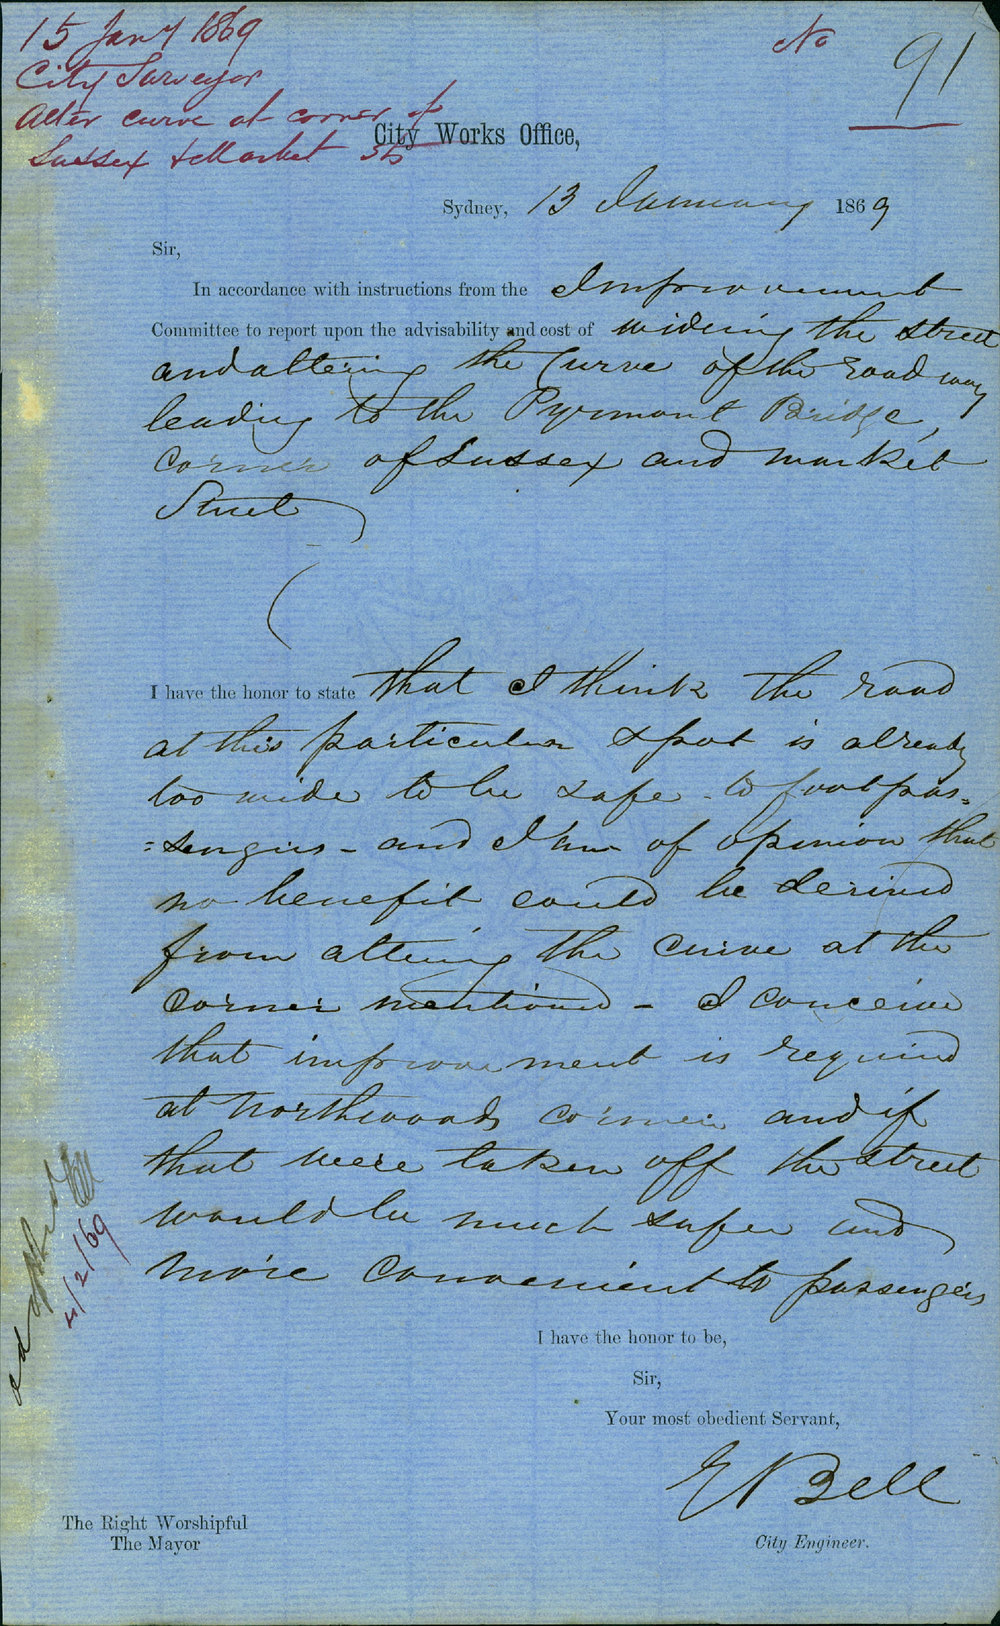 15 Jany 1869
City Surveyor
Alter curve at corner of
Sussex & Market Sts
No 91
City Works Office,
Sydney, 13 January 1869
Sir,
In accordance with instructions from the Improvement
Committee to report upon the advisability and cost of widening the street
and altering the Curve of the roadway
leading to the Pyrmont Bridge,
corner of Sussex and market
Street
I have the honor to state that I think the road
at this particular spot is already
too wide to be safe to footpas=
=sengers - and I am of opinion that
no benefit could be derived
from altering the curve at the
corner mentioned - I conceive
that improvement is required
at Northwoods corner and if
that were taken off the street
would be much safer and
more convenient to passengers
I have the honor to be,
Sir,
Your most obedient Servant,
E Bell
City Engineer.
The Right Worshipful
The Mayor
/2/69